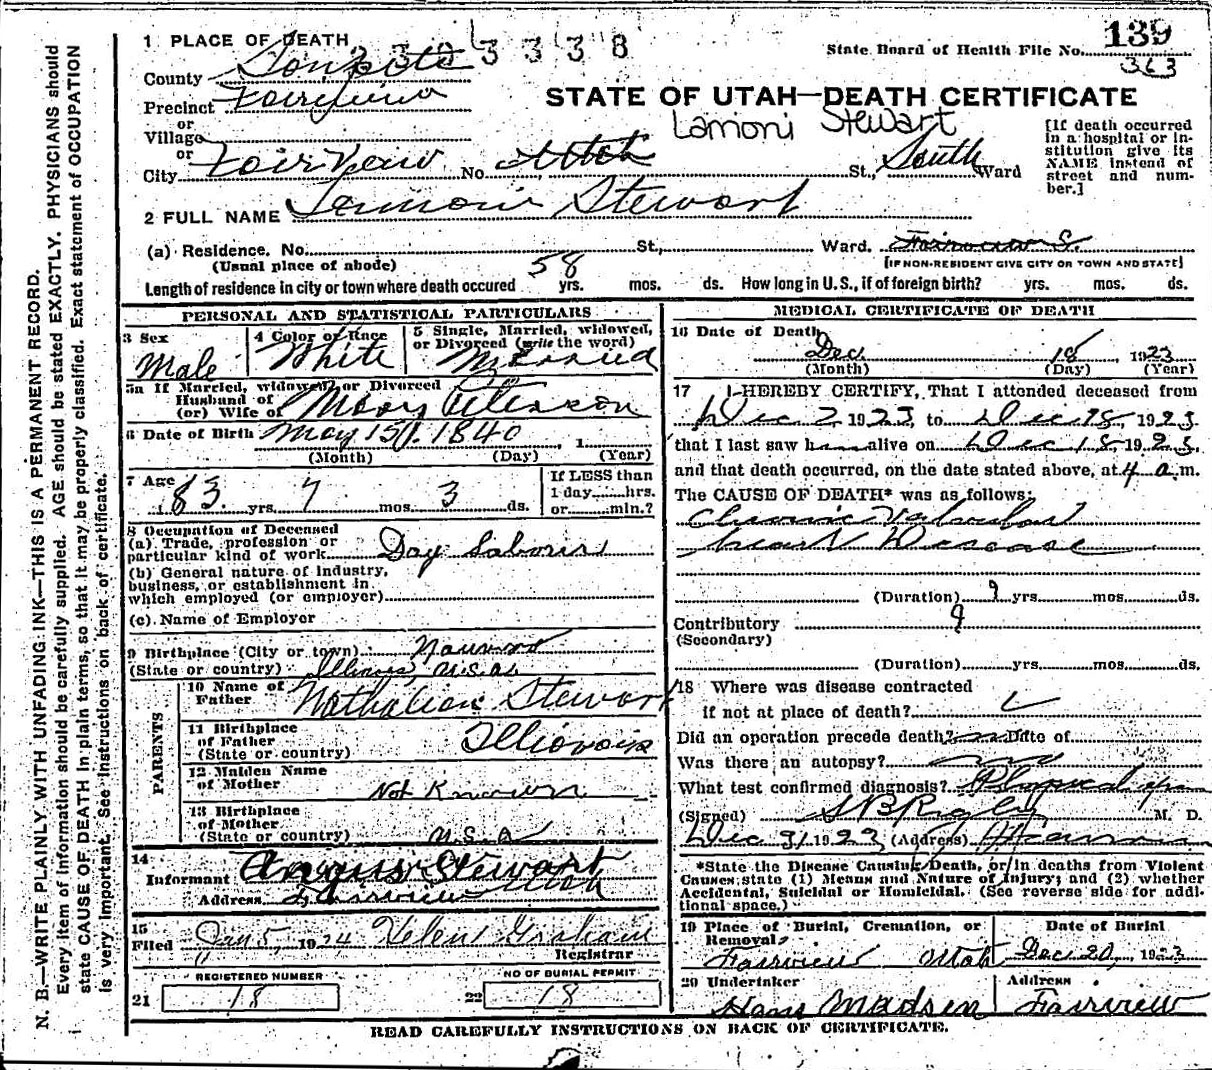 N. B.—WRITE PLAINLY WITH UNFADING INK—THIS IS A PERMANENT RECORD.
Every item of information should be carefully supplied. AGE should be stated EXACTLY. PHYSICIANS should
state CAUSE OF DEATH in plain terms, so that it may be properly classified. Exact statement of OCCUPATION
is very important. See instructions on back of certificate.
State Board of Health File No. 139
363
1 PLACE OF DEATH
County Sanpete
Precinct Fairview
or
Village
or
City Fairview No. Utah St., South Ward
STATE OF UTAH—DEATH CERTIFICATE
Lamoni Stewart
[If death occurred
in a hospital or in-
stitution give its
NAME instead of
street and num-
ber.]
2 FULL NAME Lamoni Stewart
(a) Residence. No. St., Ward. Fairview S.
(Usual place of abode) [IF NON-RESIDENT GIVE CITY OR TOWN AND STATE]
Length of residence in city or town where death occured 58 yrs. mos. ds. How long in U. S., if of foreign birth? yrs. mos. ds.
PERSONAL AND STATISTICAL PARTICULARS
3 Sex Male
4 Color of Race White
5 Single, Married, widowed,
or Divorced (write the word) Married
5a If Married, widowed, or Divorced
Husband of
(or) Wife of Mary Peterson
6 Date of Birth May 15th. 1840, 1
(Month) (Day) (Year)
7 Age 83 yrs. 7 mos. 3 ds.
If LESS than
1 day hrs.
or min.?
8 Occupation of Deceased
(a) Trade, profession or
particular kind of work Day Laborer
(b) General nature of Industry,
business, or establishment in
which employed (or employer)
(c) Name of Employer
9 Birthplace (City or town) Nauvoo
(State or country) Illinois, U.S.A.
PARENTS
10 Name of
Father Nathalian Stewart
11 Birthplace
of Father
(State or country) Illionois
12 Maiden Name
of Mother Not Known
13 Birthplace
of Mother
(State or country) U.S.A
14
Informant Angus Stewart
Address Fairview Utah
15
Filed Jan 5, 1924 Helen Graham
Registrar
REGISTERED NUMBER
21 18
NO OF BURIAL PERMIT
22 18
MEDICAL CERTIFICATE OF DEATH
16 Date of Death
Dec. 18, 1923
(Month) (Day) (Year)
17 I HEREBY CERTIFY, That I attended deceased from
Dec 2 1923, to Dec 18, 1923
that I last saw him alive on Dec 18 1923,
and that death occurred, on the date stated above, at 4 a.m.
The CAUSE OF DEATH* was as follows:
Chronic Valvular
heart Disease
(Duration) 9 yrs. mos. ds.
Contributory 9
(Secondary)
(Duration) yrs. mos. ds.
18 Where was disease contracted
if not at place of death?
Did an operation precede death? no Date of
Was there an autopsy? no
What test confirmed diagnosis? Physical
(Signed) M. D.
Dec 31 1923 (Address)
*State the Disease Causing Death, or in deaths from Violent
Causes state (1) Means and Nature of Injury; and (2) whether
Accidental, Suicidal or Homicidal. (See reverse side for addi-
tional space.)
19 Place of Burial, Cremation, or
Removal
Fairview Utah
Date of Burial
Dec 20, 1923
20 Undertaker
Hans Madsen
Address
Fairview
READ CAREFULLY INSTRUCTIONS ON BACK OF CERTIFICATE.